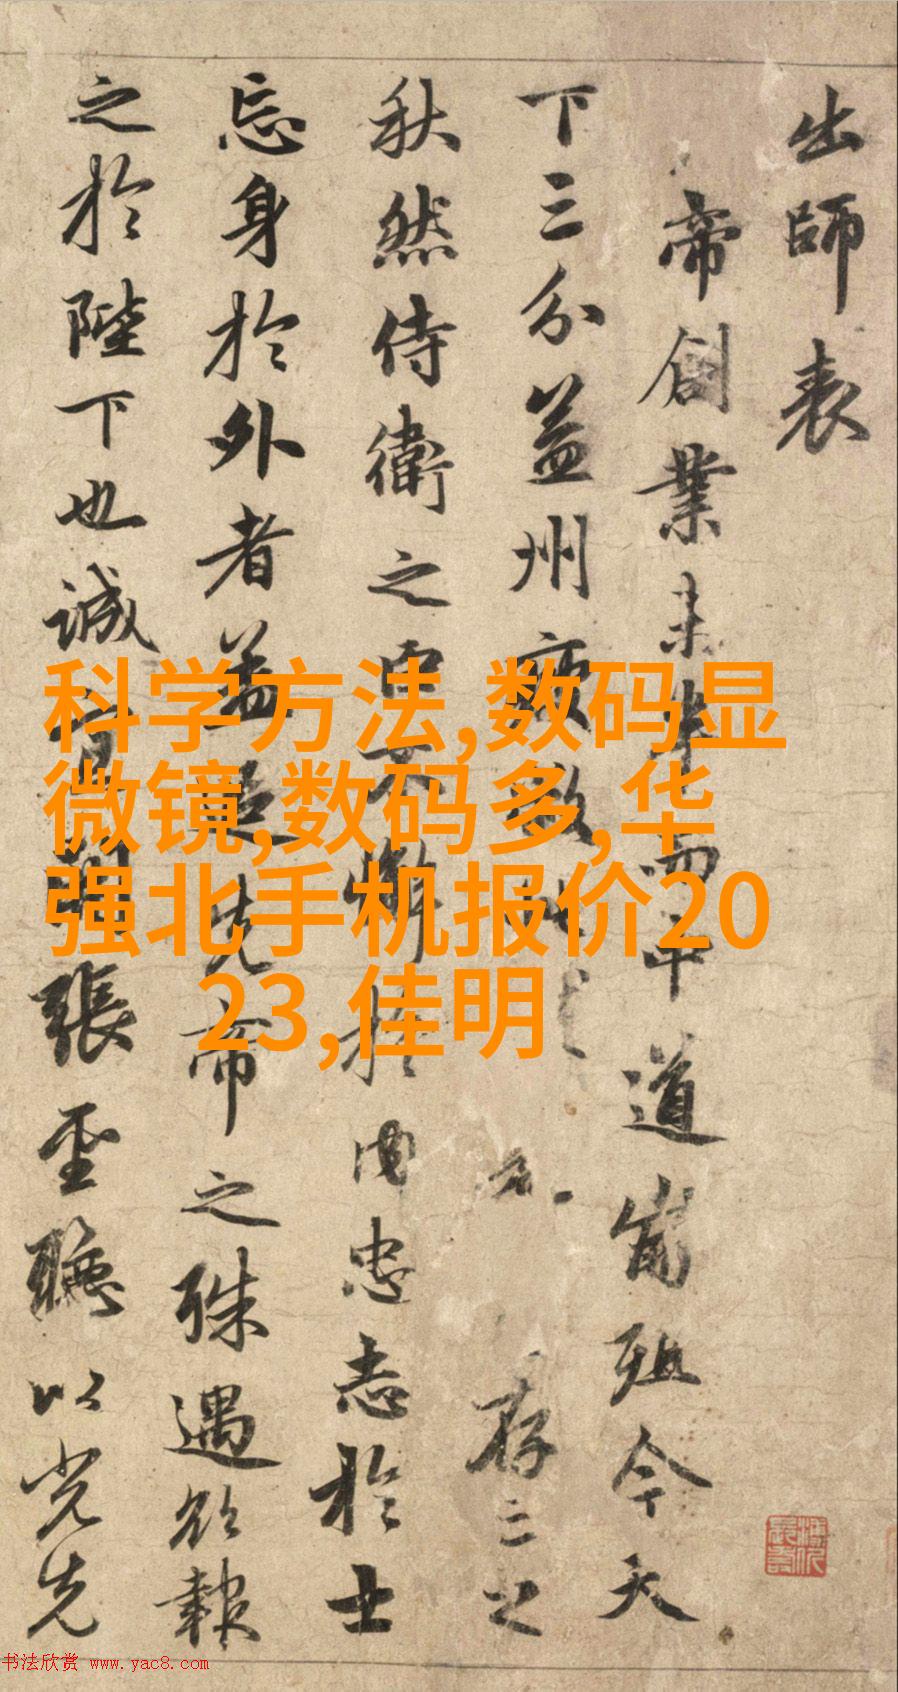 出師表
帝創業未半而中道崩殂今天
下三分益州疲敝此存之
秋然侍衛之臣不懈於内忠志於士
忘身於外者蓋追先帝之殊遇欲報
之於陛下也誠宜開張聖聽以光先
科学方法,数码显
微镜,数码多,华
强北手机报价20
23,佳明
书法欣赏 www.yac8.com